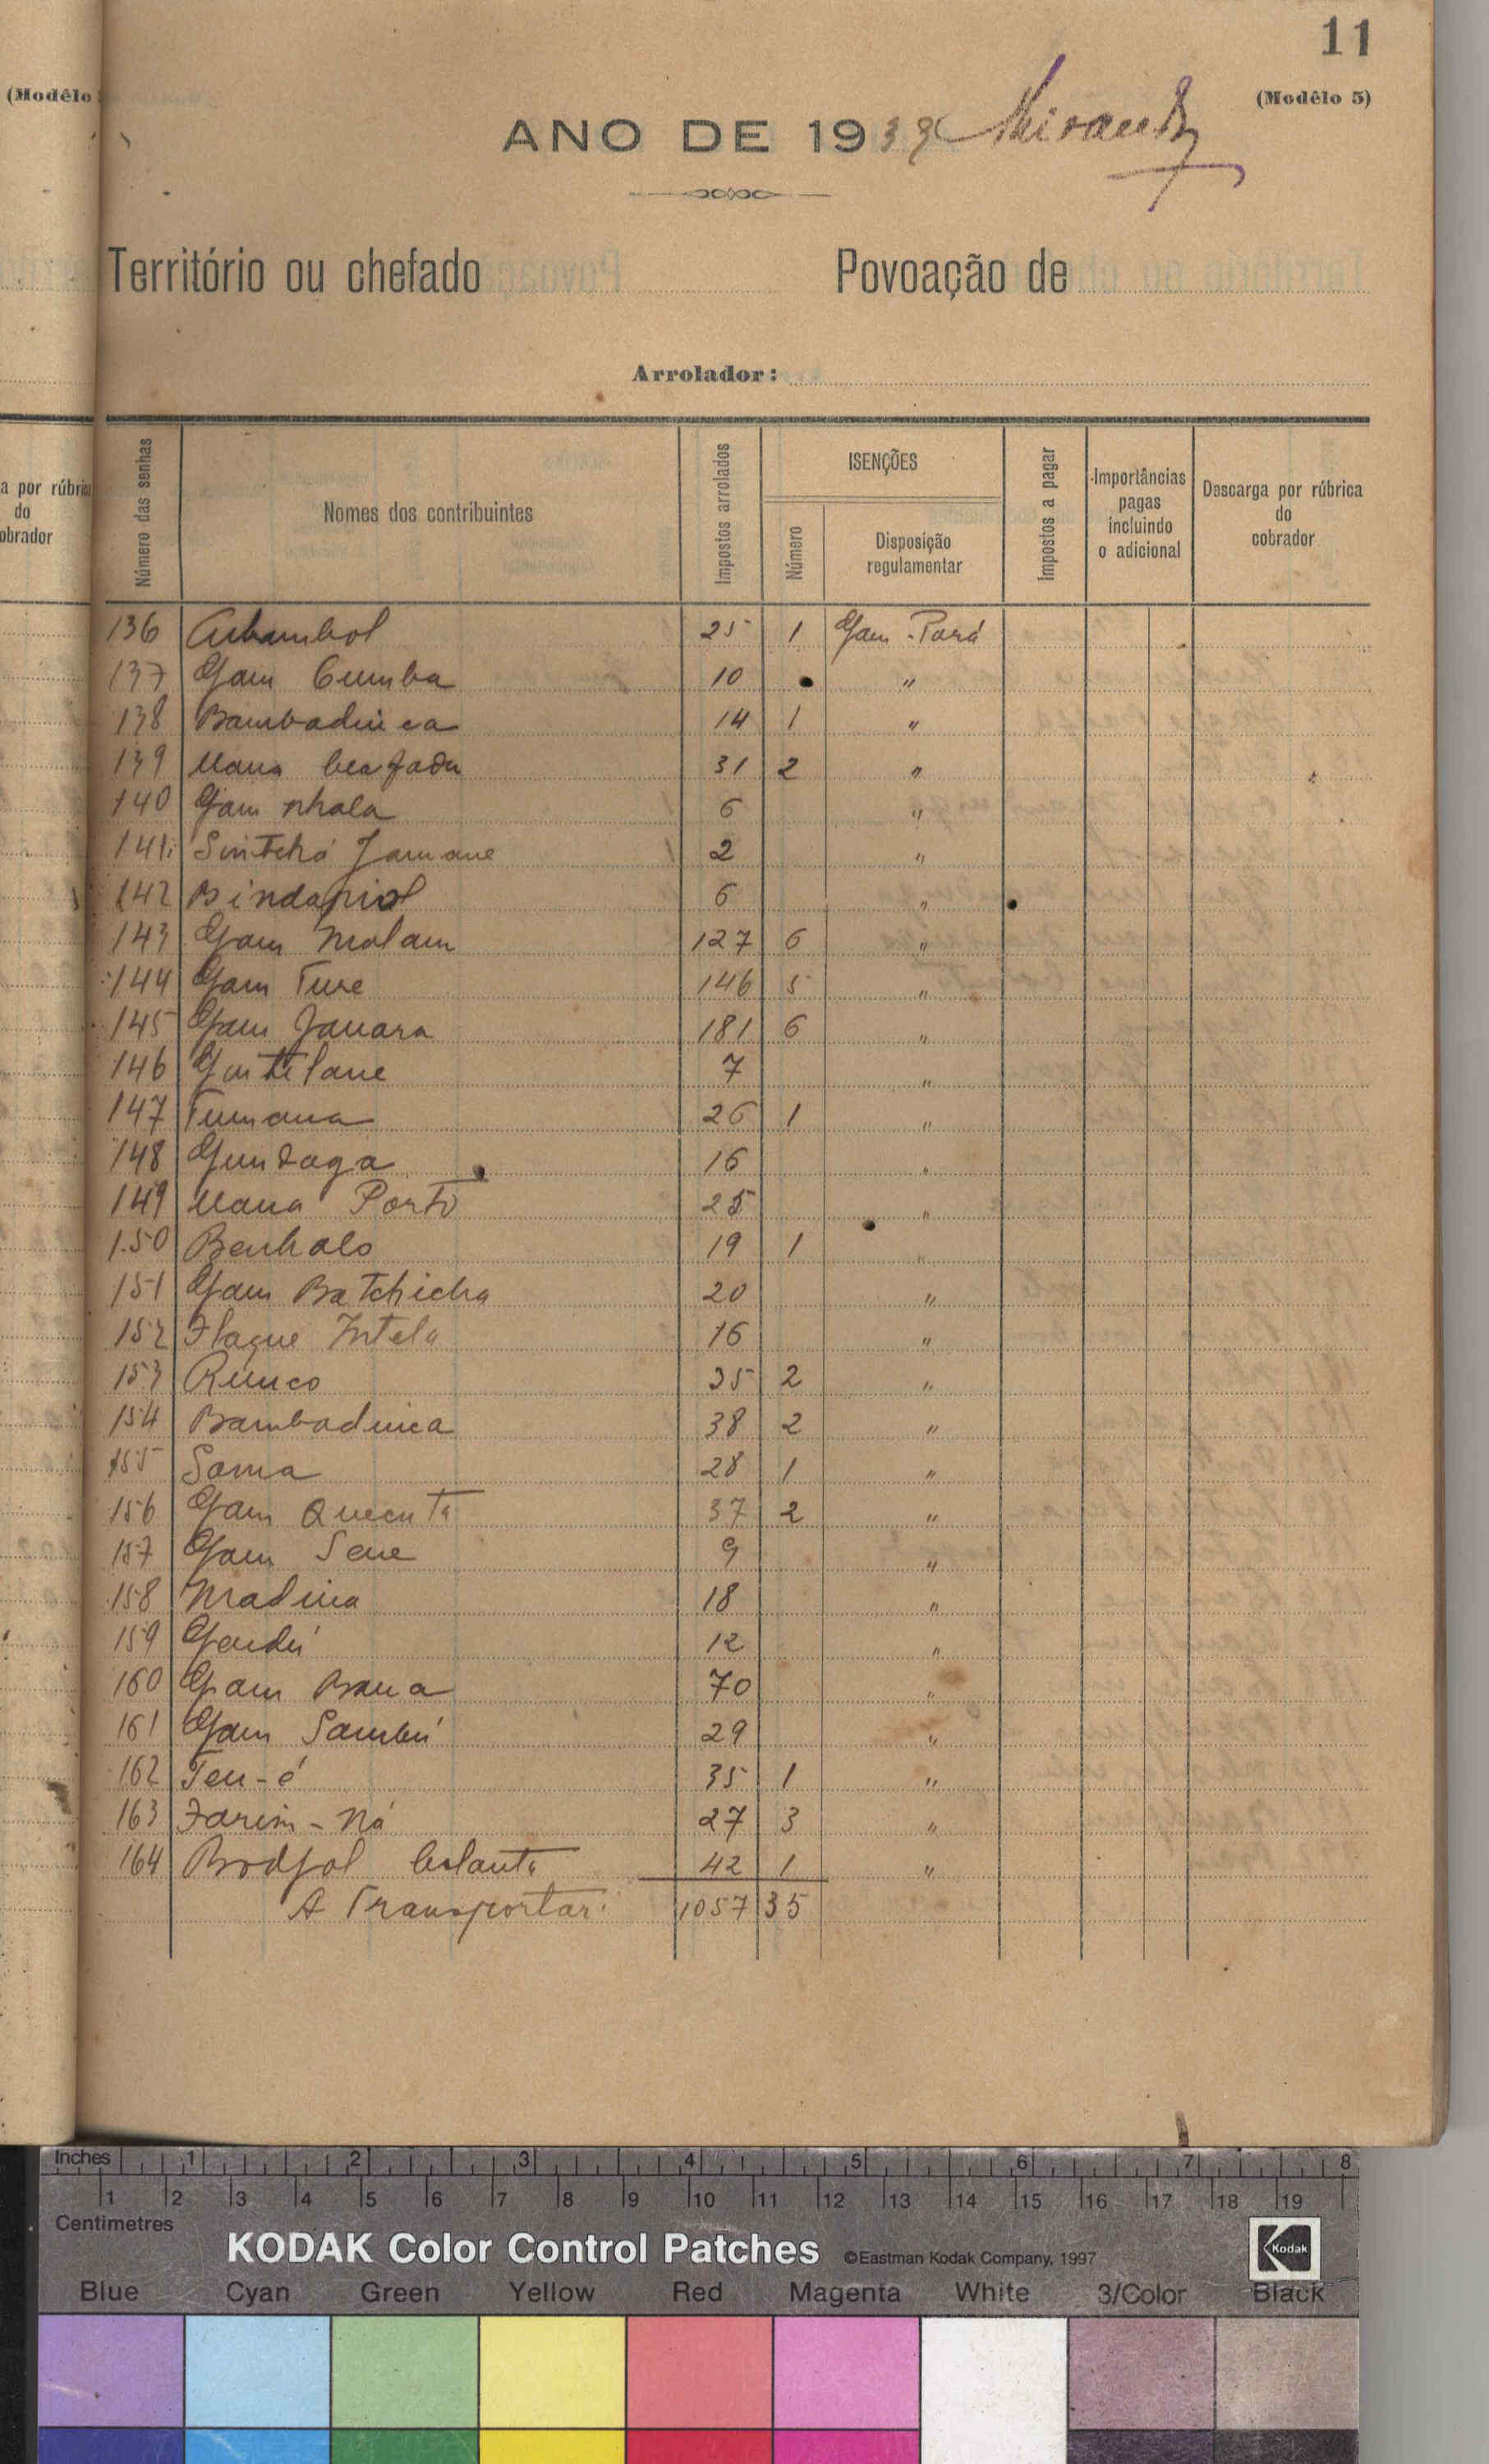 11
(Modêlo
(Modêlo 5)
ANO DE 1939 Miranda
Território ou chefado Povoação de
Arrolador:
a por rúbrica
do
cobrador
Número das senhas
Nomes dos contribuintes
Impostos arrolados
ISENÇÕES
Número
Disposição
regulamentar
Impostos a pagar
Importâncias
pagas
incluindo
o adicional
Descarga por rúbrica
do
cobrador
136 25 1 Gam-Pará
137 Gam Cumba 10 "
138 Bambadinca 14 1 "
139 Mana beafada 31 2 "
140 Gam nhala 6 "
141 Sintchó Jamane 2 "
142 6 "
143 Gam Malam 127 6 "
144 Gam Ture 146 5 "
145 Gam Januara 181 6 "
146 7 "
147 Tumana 26 1 "
148 Gundaga 16 "
149 Mana Porto 25 "
150 Benhalo 19 1 "
151 Gam Batchicha 20 "
152 Flaque Intela 16 "
153 Runco 35 2 "
154 Bambadinca 38 2 "
155 Sama 28 1 "
156 Gam Quecuta 37 2 "
157 Gam Sene 9 "
158 Madina 18 "
159 Gendú 12 "
160 Gam Bana 70 "
161 Gam Sambú 29 "
162 Ten-é 35 1 "
163 Farim-Ná 27 3 "
164 42 1 "
A Transportar: 1057 35
Inches 1 2 3 4 5 6 7 8
1 2 3 4 5 6 7 8 9 10 11 12 13 14 15 16 17 18 19
Centimetres
KODAK Color Control Patches ©Eastman Kodak Company, 1997 Kodak
Blue Cyan Green Yellow Red Magenta White 3/Color Black